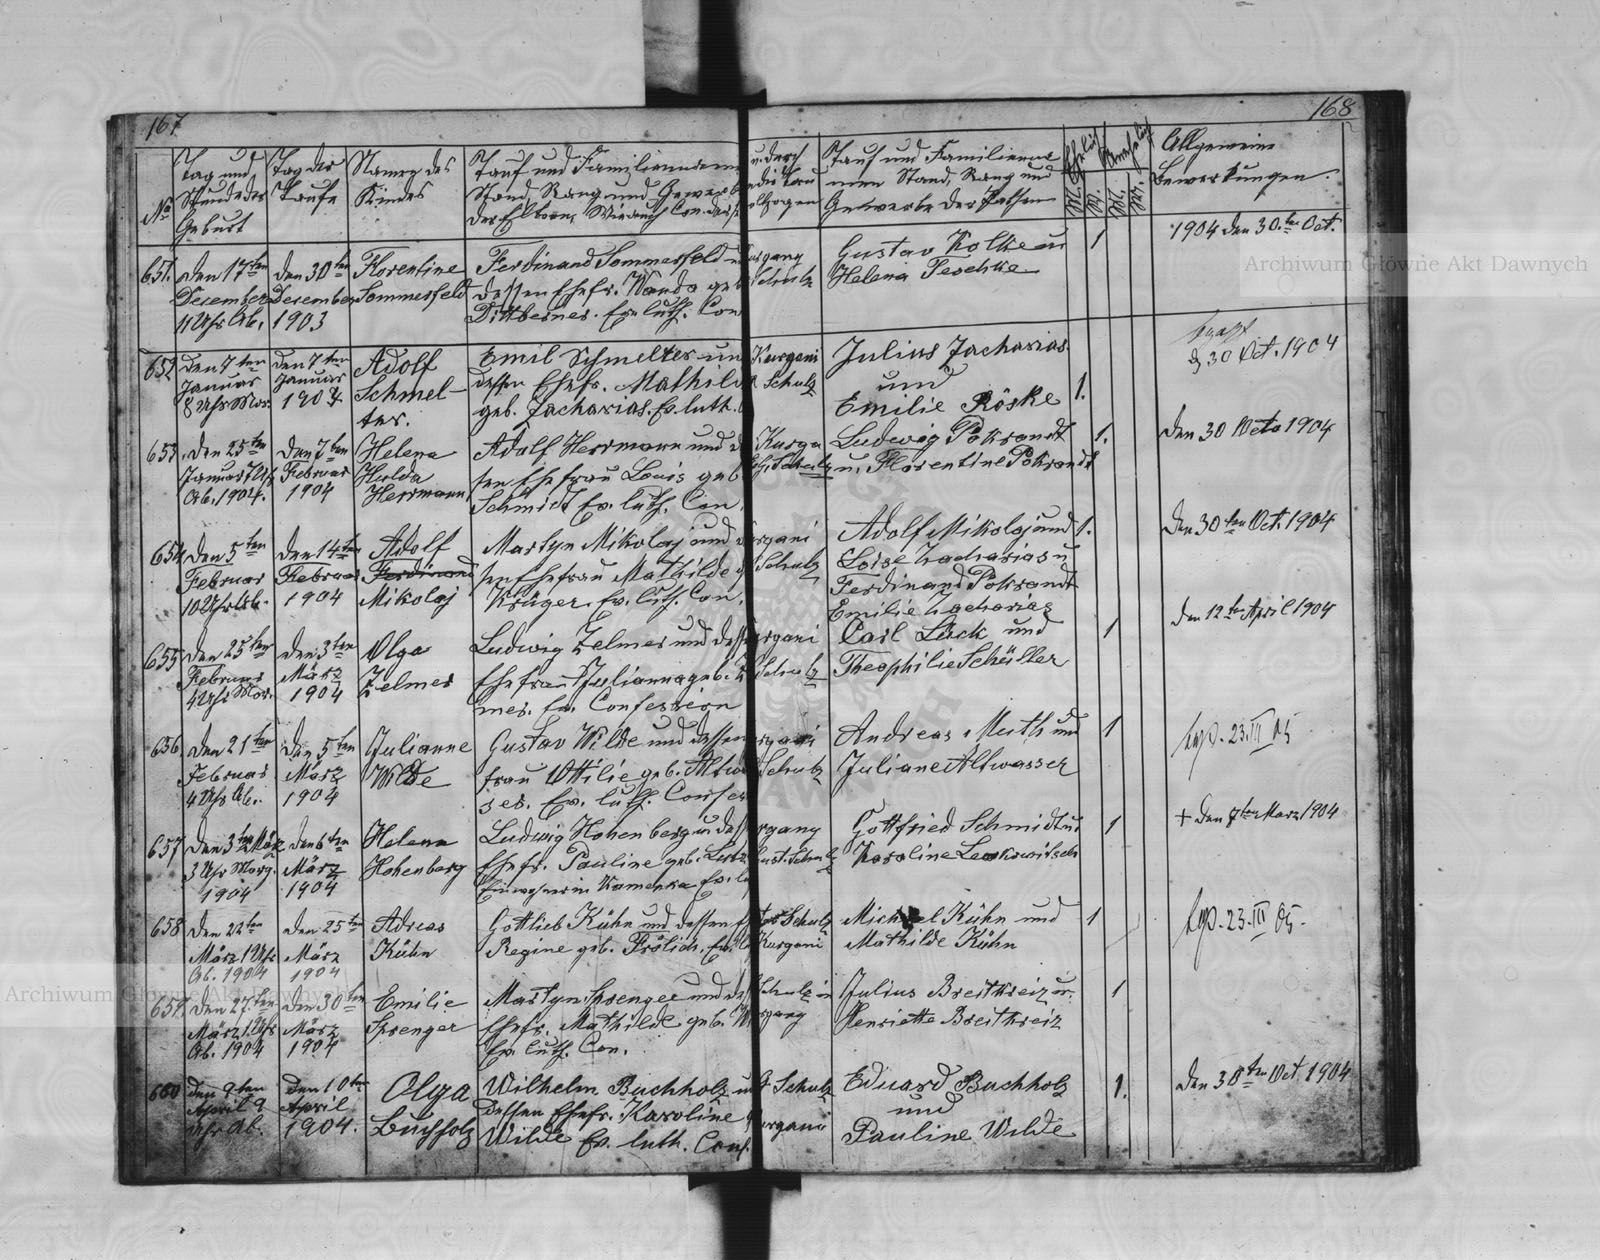 167
168
No
Tag und
Stunde der
Geburt
Tag der
Taufe
Namen des
Kindes
Tauf und Familiennamen
Stand, Rang und Gewerb
der Eltern,
Tauf und Familienna
men Stand, Rang und
Gewerbe der Pathen
Allgemeine
Bemerkungen.
651.
den 17ten
December
11 Uhr Ab.
den 30ten
December
1903
Florentine
Sommerfeld
Ferdinand Sommerfeld u
dessen Ehefr. Wanda geb
Dittberner. Ev. luth. Con
urgang
Schulz
Gustav Kolke u
Helena Peschke
1
1904 den 30.ten Oct.
652
den 7ten
Januar
8 Uhr Mor.
den 7ten
Januar
1904
Adolf
Schmel-
ter.
Emil Schmelter un
dessen Ehefr. Mathild
geb. Zacharias. Ev. luth.
Kurgani
Schulz
Julius Zacharias
und
Emilie Röske
1.
30 Oct. 1904
653.
den 25ten
Januar 7 Uhr
Ab. 1904.
den 7ten
Februar
1904
Helena
Hulda
Herrmann
Adolf Herrmann und d
sen Ehefrau Louis geb
Schmidt Ev. luth. Con.
Kurga
G. Schulz
Ludwig Pokrandt
u. Florentine Pokrandt
1.
den 30 Octo 1904
654
den 5ten
Februar
10 Uhr Ab.
den 14ten
Februar
1904
Adolf
Ferdinand
Mikolaj
Martyn Mikolaj und d
sen Ehefrau Mathilde g
Krüger. Ev. luth. Con.
urgani
Schulz
Adolf Mikolaj und
Loise Zacharias u
Ferdinand Pokrandt
Emilie Zacharias
1.
den 30ten Oct. 1904
655
den 25ten
Februar
4 Uhr Mor.
den 3ten
März
1904
Olga
Zelmer
Ludwig Zelmer und dess
Ehefrau Julianna geb. Z
mer. Ev. Confession
urgani
Schulz
Carl Lück und
Theophilie Schüller
1
den 12ten April 1904
656
den 21ten
Februar
4 Uhr Ab.
den 5ten
März
1904
Julianne
Wilde
Gustav Wilde und dessen
frau Ottilie geb. Altwa
ser. Ev. luth. Confes
urgani
Schulz
Andreas Muth und
Juliane Altwasser
1
23. III 05
657
den 3ten März
3 Uhr Morg.
1904
den 6ten
März
1904
Helena
Hohenberg
Ludwig Hohenberg u. dess
Ehefr. Pauline geb.
Einwohner in Kamenka Ev. lu
urgang
ust. Schulz
Gottfried Schmidt u
Karoline
1
+ den 7ten März 1904
658
den 22ten
März 1 Uhr
Ab. 1904
den 25ten
März
1904
Adreas
Kühn
Gottlieb Kühn und dessen E
Regine geb. Frölich. Ev.
Schulz
Kurgani
Michael Kühn und
Mathilde Kühn
1
23. III 05.
659.
den 27ten
März 1 Uhr
Ab. 1904
den 30ten
März
1904
Emilie
Sprenger
Martyn Sprenger und des
Ehefr. Mathilde geb. W
Ev. luth. Con.
Schulz in
urgang
Julius Breitkreiz u.
Henriette Breitkreiz
1
660
den 9ten
April 9
Uhr Ab.
den 10ten
April
1904.
Olga
Buchholz
Wilhelm Buchholz u
dessen Ehefr. Karoline
Wilde Ev. luth. Conf.
G. Schulz
urgani
Eduard Buchholz
und
Pauline Wilde
1.
den 30ten Oct 1904
Archiwum Główne Akt Dawnych
Archiwum Główne Akt Dawnych